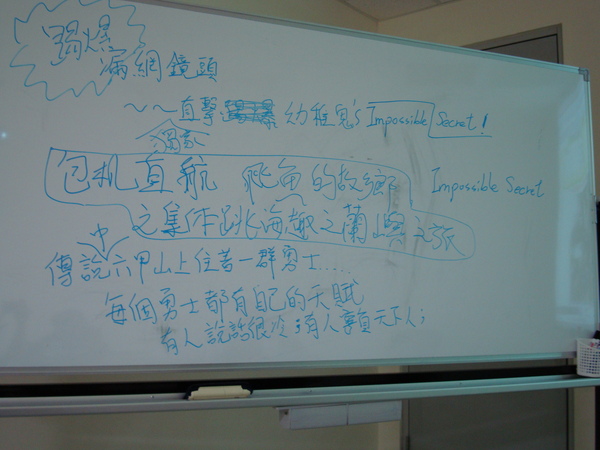 踢爆
漏網鏡頭
~~直擊 幼稚鬼's Impossible Secret!
獨家
包机直航 飛魚的故鄉 Impossible Secret
之集体跳海趣之蘭嶼之旅
中
傳說六甲山上住著一群勇士.....
每個勇士都有自己的天賦
有人說話很冷;有人辜負天下人;